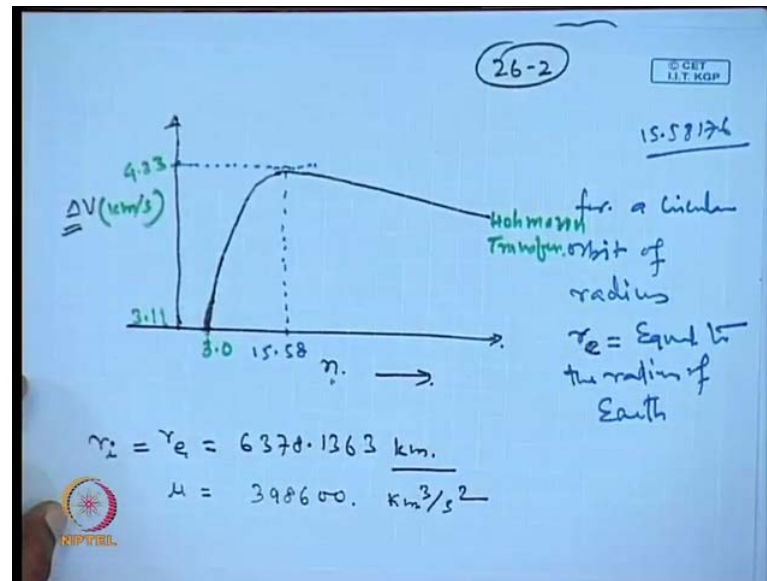 26-2
© CET
I.I.T. KGP
15.58176
4.33
ΔV(km/s)
3.11
3.0 15.58
n.
Hohmann
Transfer.
for a circular
orbit of
radius
re = Equal to
the radius of
Earth
ri = re = 6378.1363 km.
μ = 398600. km³/s²
NPTEL